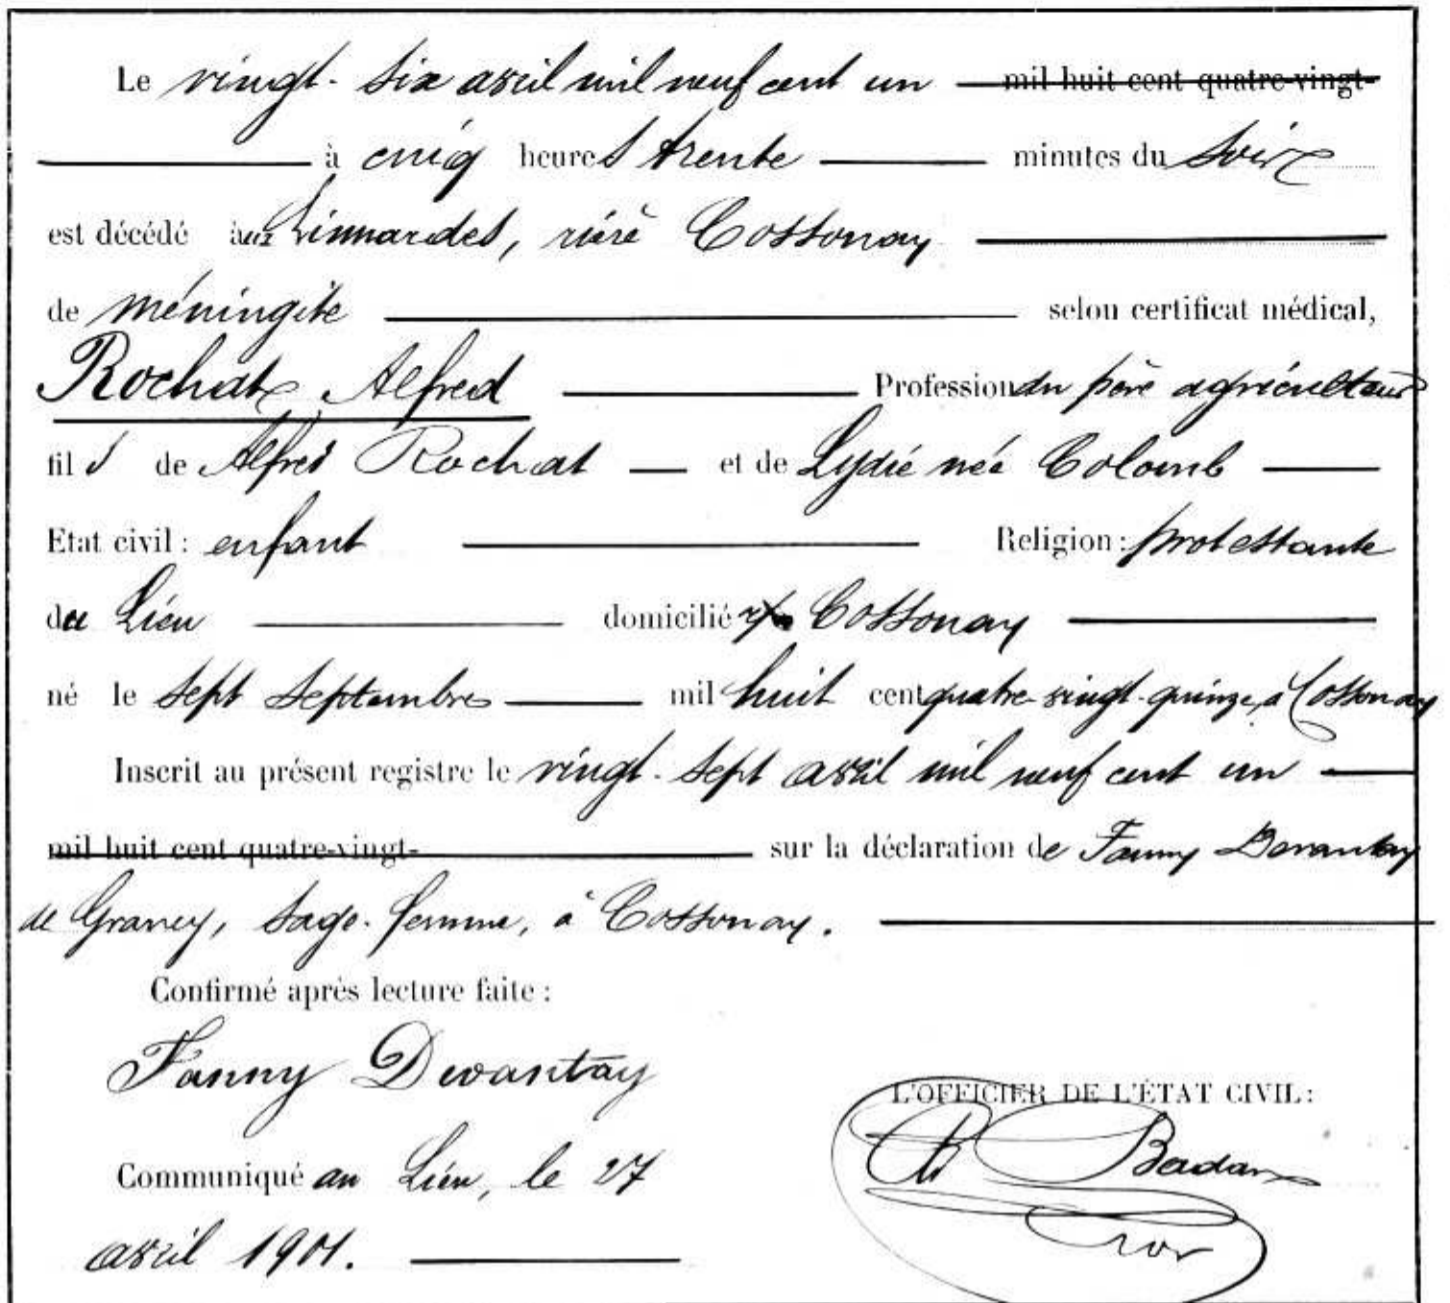 Le vingt-six avril mil neuf cent un — mil huit cent quatre-vingt-
à cinq heures trente minutes du soir
est décédé aux, rière Cossonay
de méningite selon certificat médical,
Rochat Alfred Profession du père agriculteur
fils de Alfred Rochat et de Lydie née Colomb
Etat civil : enfant Religion : protestante
du Lieu domicilié Cossonay
né le sept septembre mil huit cent quatre-vingt-quinze, à Cossonay
Inscrit au présent registre le vingt-sept avril mil neuf cent un
mil huit cent quatre-vingt- sur la déclaration de Fanny Devantay
de Grancy, sage-femme, à Cossonay.
Confirmé après lecture faite :
Fanny Devantay
L'OFFICIER DE L'ÉTAT CIVIL :
Communiqué au Lieu, le 27
avril 1901.